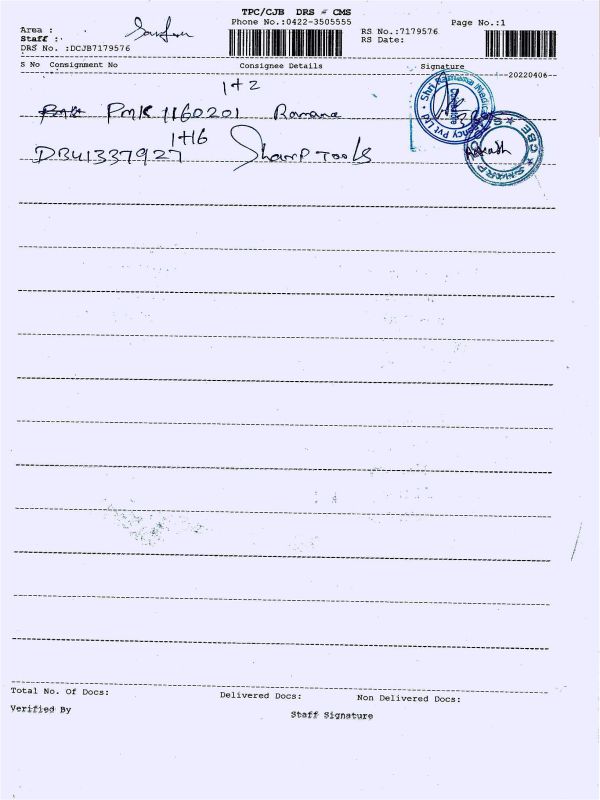 TPC/CJB DRS # CMS
Phone No.:0422-3505555
Page No.:1
Area :
Staff :
RS No.:7179576
DRS No. :DCJB7179576
RS Date:
S No Consignment No Consignee Details Signature
-20220406-
1+2
PMK 1160201 Ramana
1+16
DBU1337927 Sharp Tools
Shri Ramana Medical Agency Pvt Ltd
Akash
SHARP CBE
Total No. Of Docs: Delivered Docs: Non Delivered Docs:
Verified By Staff Signature